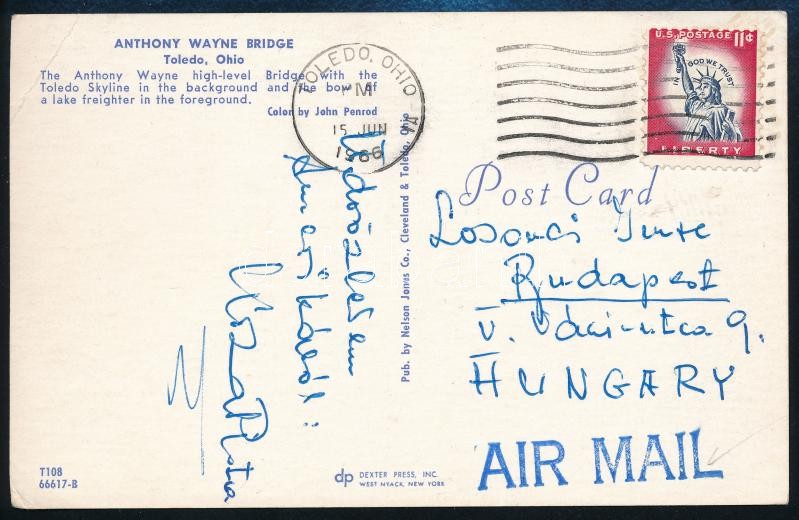 ANTHONY WAYNE BRIDGE
Toledo, Ohio
The Anthony Wayne high-level Bridge with the
Toledo Skyline in the background and the bow of
a lake freighter in the foreground.
Color by John Penrod
TOLEDO, OHIO
PM
15 JUN
1966
1A
U.S. POSTAGE 11¢
IN GOD WE TRUST
LIBERTY
Post Card
Losonci Imre
Budapest
V. Váci-utca 9.
HUNGARY
AIR MAIL
Üdvözletem
Amerikából:
Pub. by Nelson Jones Co., Cleveland & Toledo, Ohio
T108
66617-B
dp DEXTER PRESS, INC.
WEST NYACK, NEW YORK